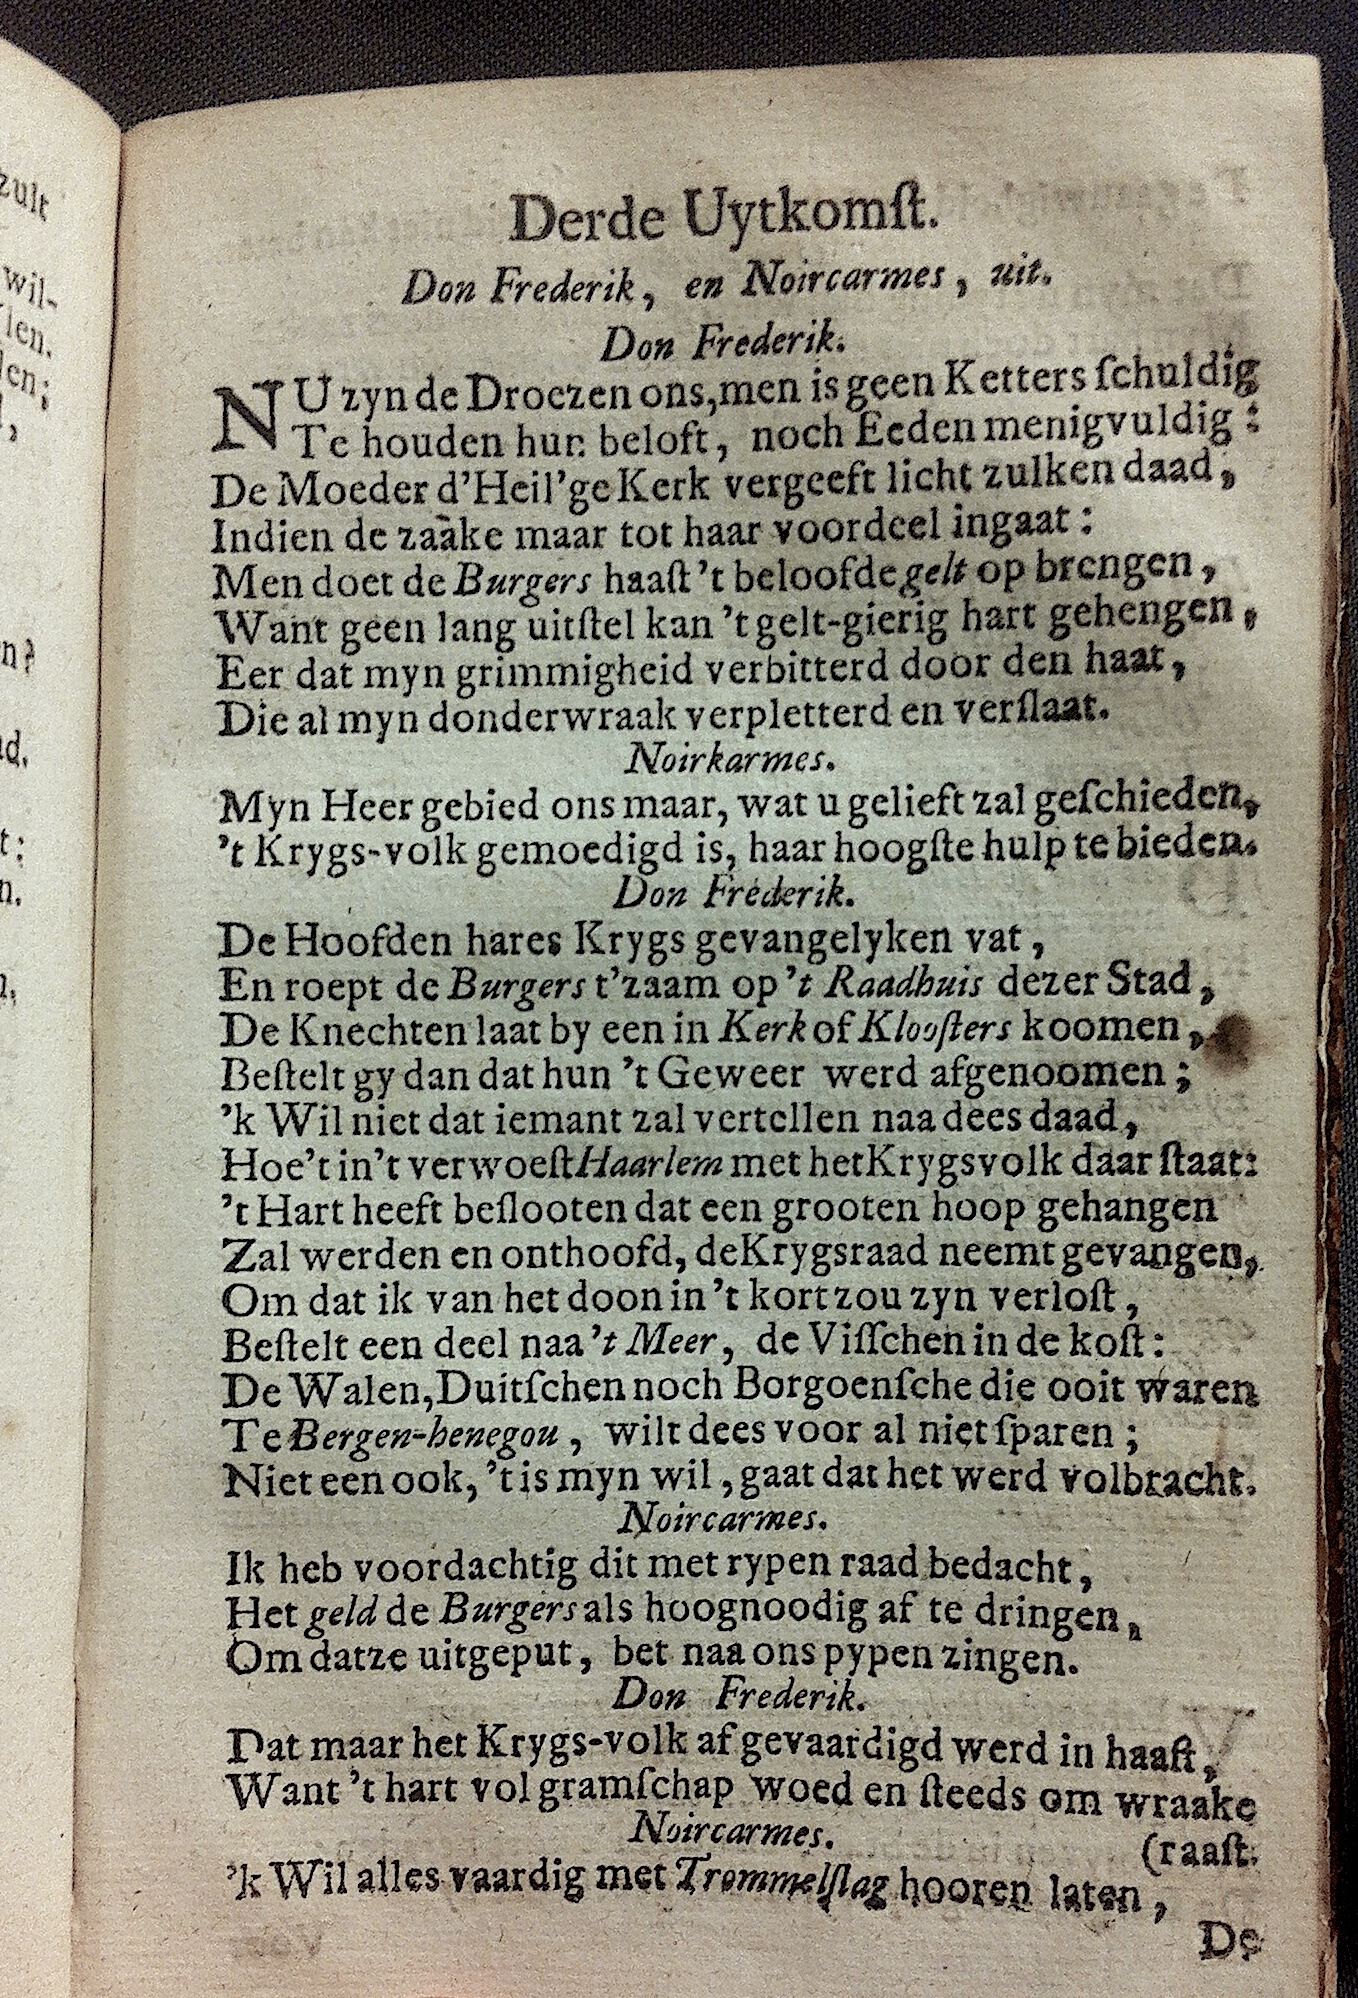 Derde Uytkomſt.
Don Frederik, en Noircarmes, uit.
Don Frederik.
NU zyn de Droezen ons, men is geen Ketters ſchuldig
Te houden hun beloft, noch Eeden menigvuldig:
De Moeder d'Heil'ge Kerk vergeeft licht zulken daad,
Indien de zaake maar tot haar voordeel ingaat:
Men doet de Burgers haaſt 't beloofde gelt op brengen,
Want geen lang uitſtel kan 't gelt-gierig hart gehengen,
Eer dat myn grimmigheid verbitterd door den haat,
Die al myn donderwraak verpletterd en verſlaat.
Noirkarmes.
Myn Heer gebied ons maar, wat u gelieft zal geſchieden,
't Krygs-volk gemoedigd is, haar hoogſte hulp te bieden.
Don Frederik.
De Hoofden hares Krygs gevangelyken vat,
En roept de Burgers t'zaam op 't Raadhuis dezer Stad,
De Knechten laat by een in Kerk of Klooſters koomen,
Beſtelt gy dan dat hun 't Geweer werd afgenoomen;
'k Wil niet dat iemant zal vertellen naa dees daad,
Hoe't in't verwoeſt Haarlem met het Krygsvolk daar ſtaat:
't Hart heeft beſlooten dat een grooten hoop gehangen
Zal werden en onthoofd, de Krygsraad neemt gevangen,
Om dat ik van het doon in 't kort zou zyn verloſt,
Beſtelt een deel naa 't Meer, de Viſſchen in de koſt:
De Walen, Duitſchen noch Borgoenſche die ooit waren
Te Bergen-henegou, wilt dees voor al niet ſparen;
Niet een ook, 't is myn wil, gaat dat het werd volbracht.
Noircarmes.
Ik heb voordachtig dit met rypen raad bedacht,
Het geld de Burgers als hoognoodig af te dringen,
Om datze uitgeput, bet naa ons pypen zingen.
Don Frederik.
Dat maar het Krygs-volk af gevaardigd werd in haaſt,
Want 't hart vol gramſchap woed en ſteeds om wraake
Noircarmes.
(raaſt.
'k Wil alles vaardig met Trommelſlag hooren laten,
De